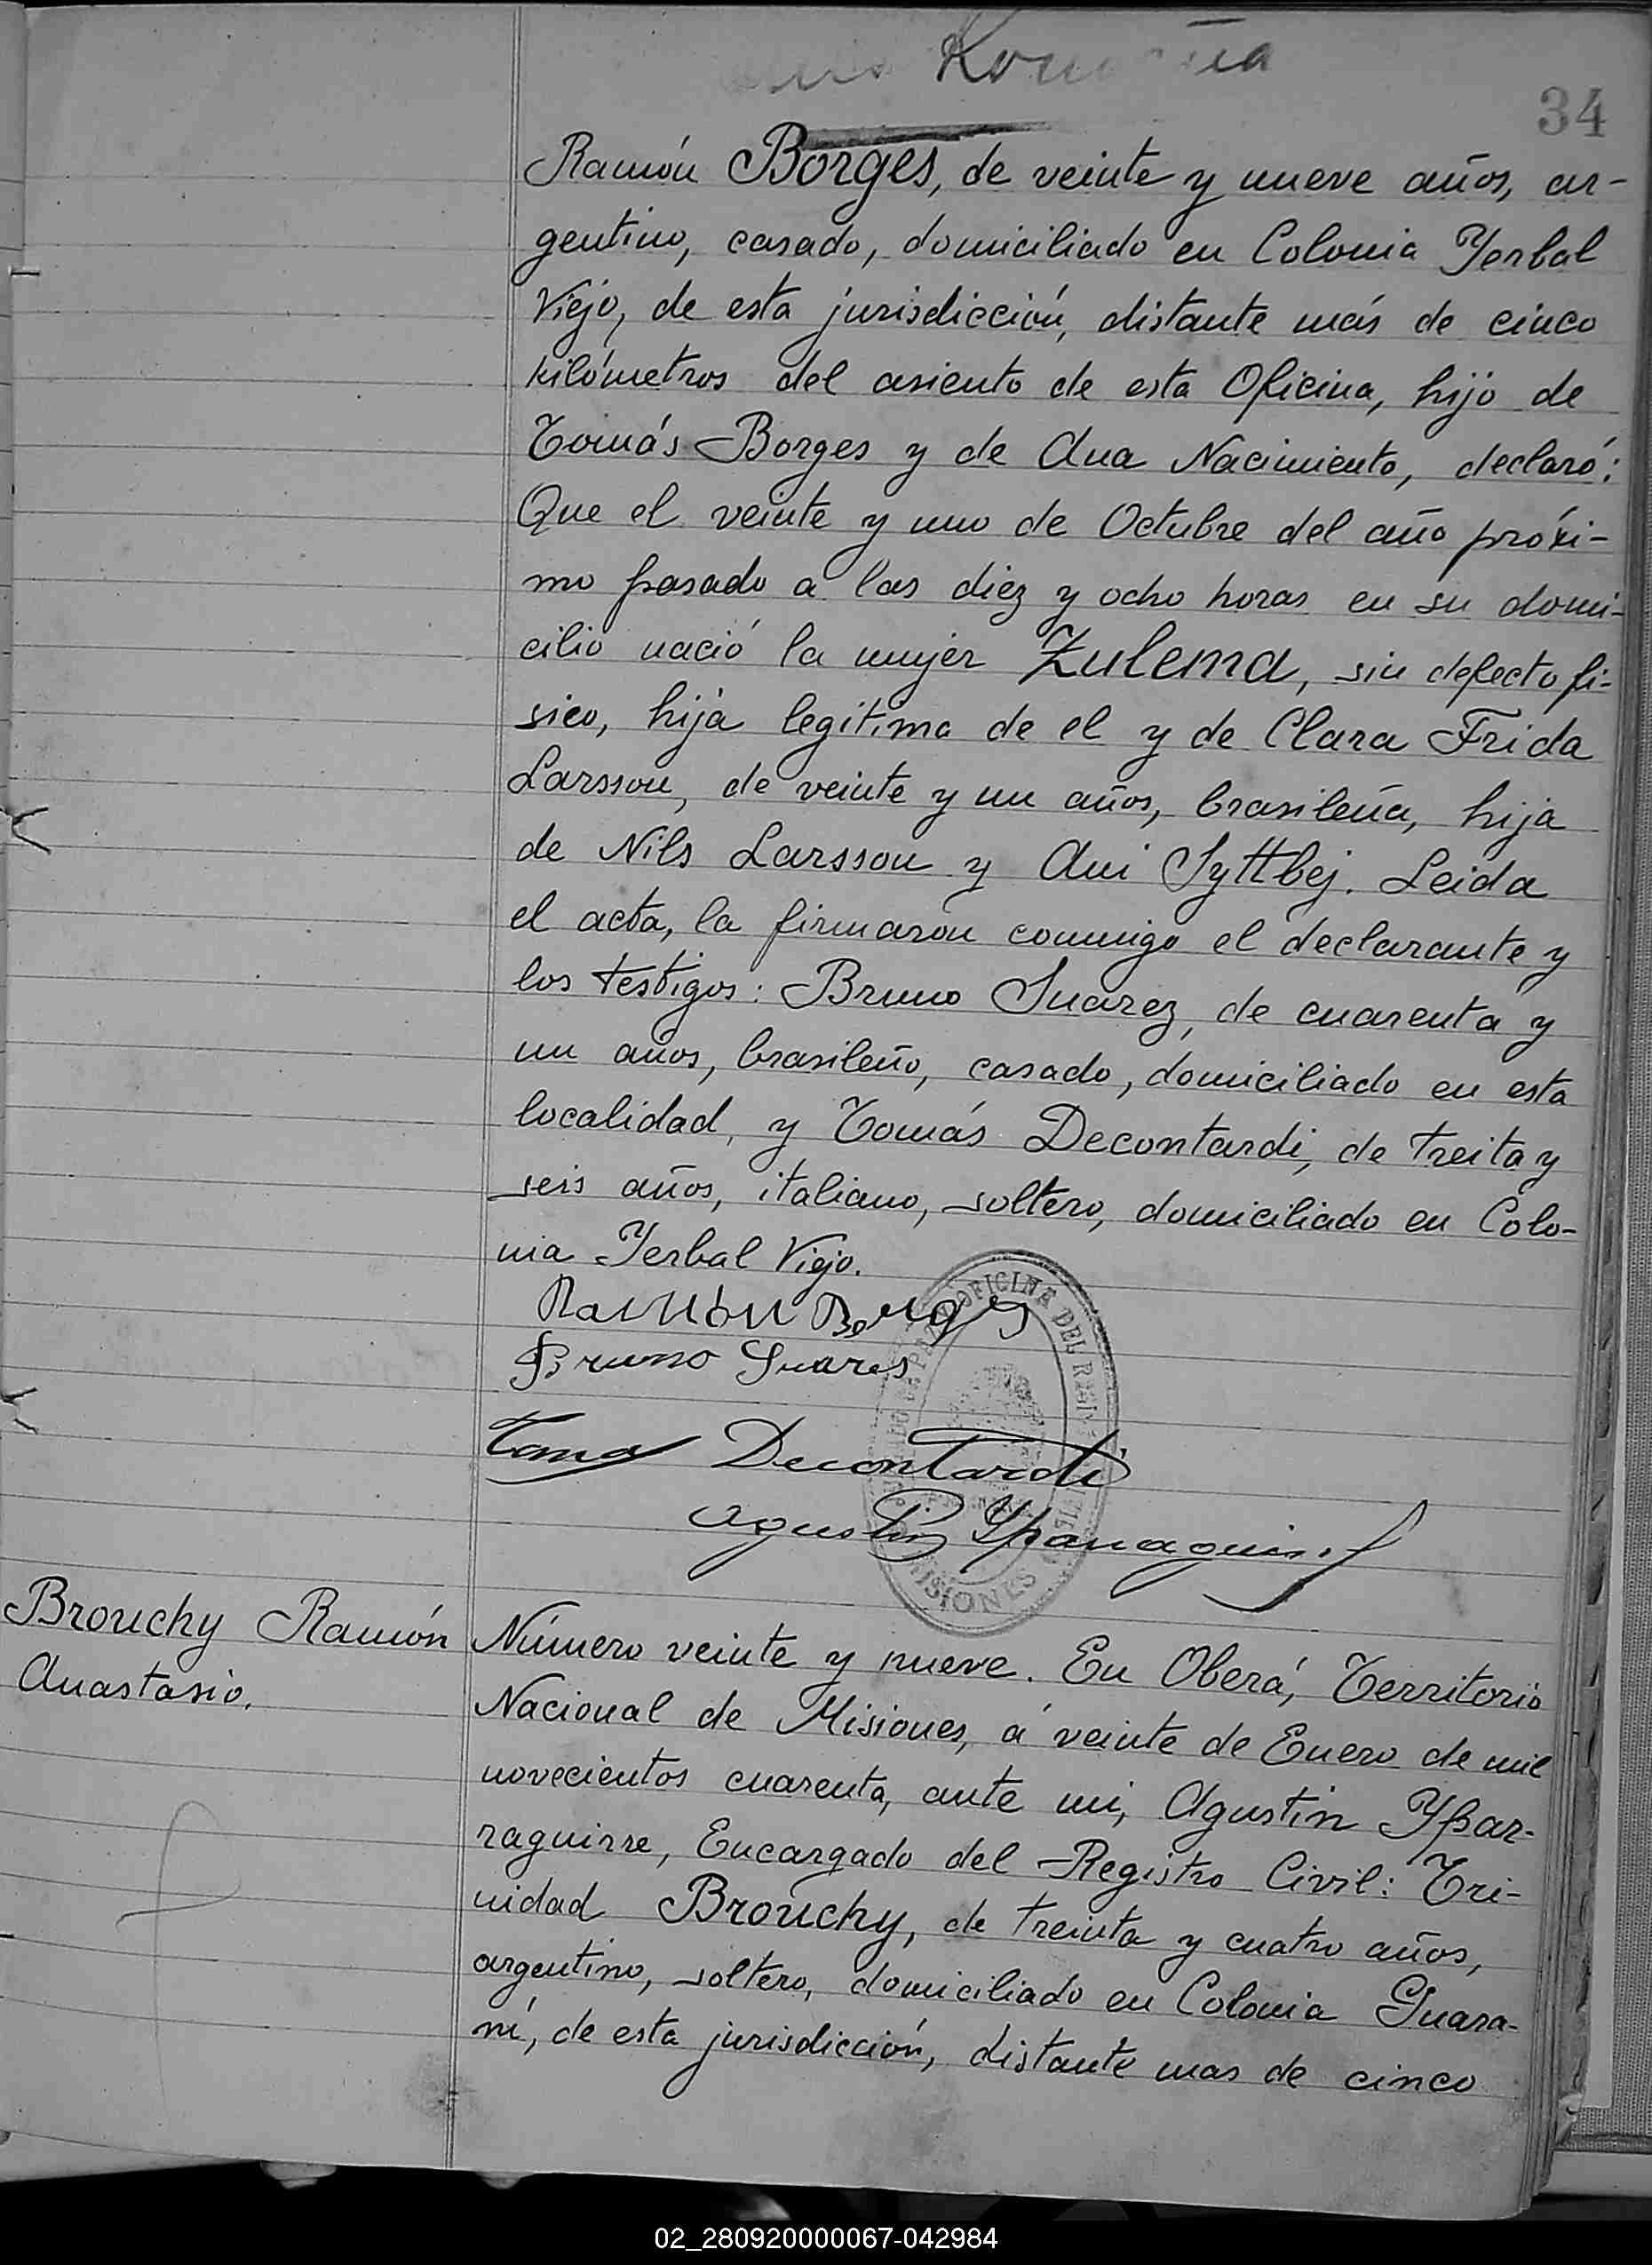 34
Ramón Borges, de veinte y nueve años, ar-
gentino, casado, domiciliado en Colonia Yerbal
Viejo, de esta jurisdicción, distante más de cinco
kilómetros del asiento de esta Oficina, hijo de
Tomás Borges y de Ana Nacimiento, declaró:
Que el veinte y uno de Octubre del año próxi-
mo pasado a las diez y ocho horas en su domi-
cilio nació la mujer Zulema, sin defecto fi-
sico, hija legitima de el y de Clara Frida
Larsson, de veinte y un años, brasileña, hija
de Nils Larsson y Ani Syttbej. Leida
el acta, la firmaron conmigo el declarante y
los testigos: Bruno Suarez, de cuarenta y
un años, brasileño, casado, domiciliado en esta
localidad, y Tomás Decontardi, de treita y
seis años, italiano, soltero, domiciliado en Colo-
nia Yerbal Viejo.
Ramón Borges
Bruno Suares
Tomas Decontardi
Agustin Yparraguirre
OFICINA DEL
MISIONES
Brouchy Ramón
Anastasio.
Número veinte y nueve. En Oberá, Territorio
Nacional de Misiones, á veinte de Enero de mil
novecientos cuarenta, ante mi, Agustin Ypar-
raguirre, Encargado del Registro Civil: Tri-
nidad Brouchy, de treinta y cuatro años,
argentino, soltero, domiciliado en Colonia Guara-
ní, de esta jurisdicción, distante mas de cinco
02_280920000067-042984